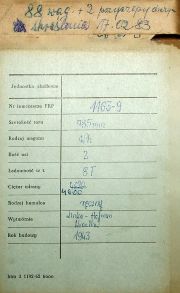 88 wag + 2
skreślenia 17.02.83
Jednostka służbowa
Nr inwentarza PKP 1163-9
Szerokość toru 785 mm
Rodzaj wagonu
Ilość osi 2
Ładowność w t 8T
Ciężar własny 4600
Rodzaj hamulca ręczny
Wytwórnia Linke-Hofman
Rok budowy 1943